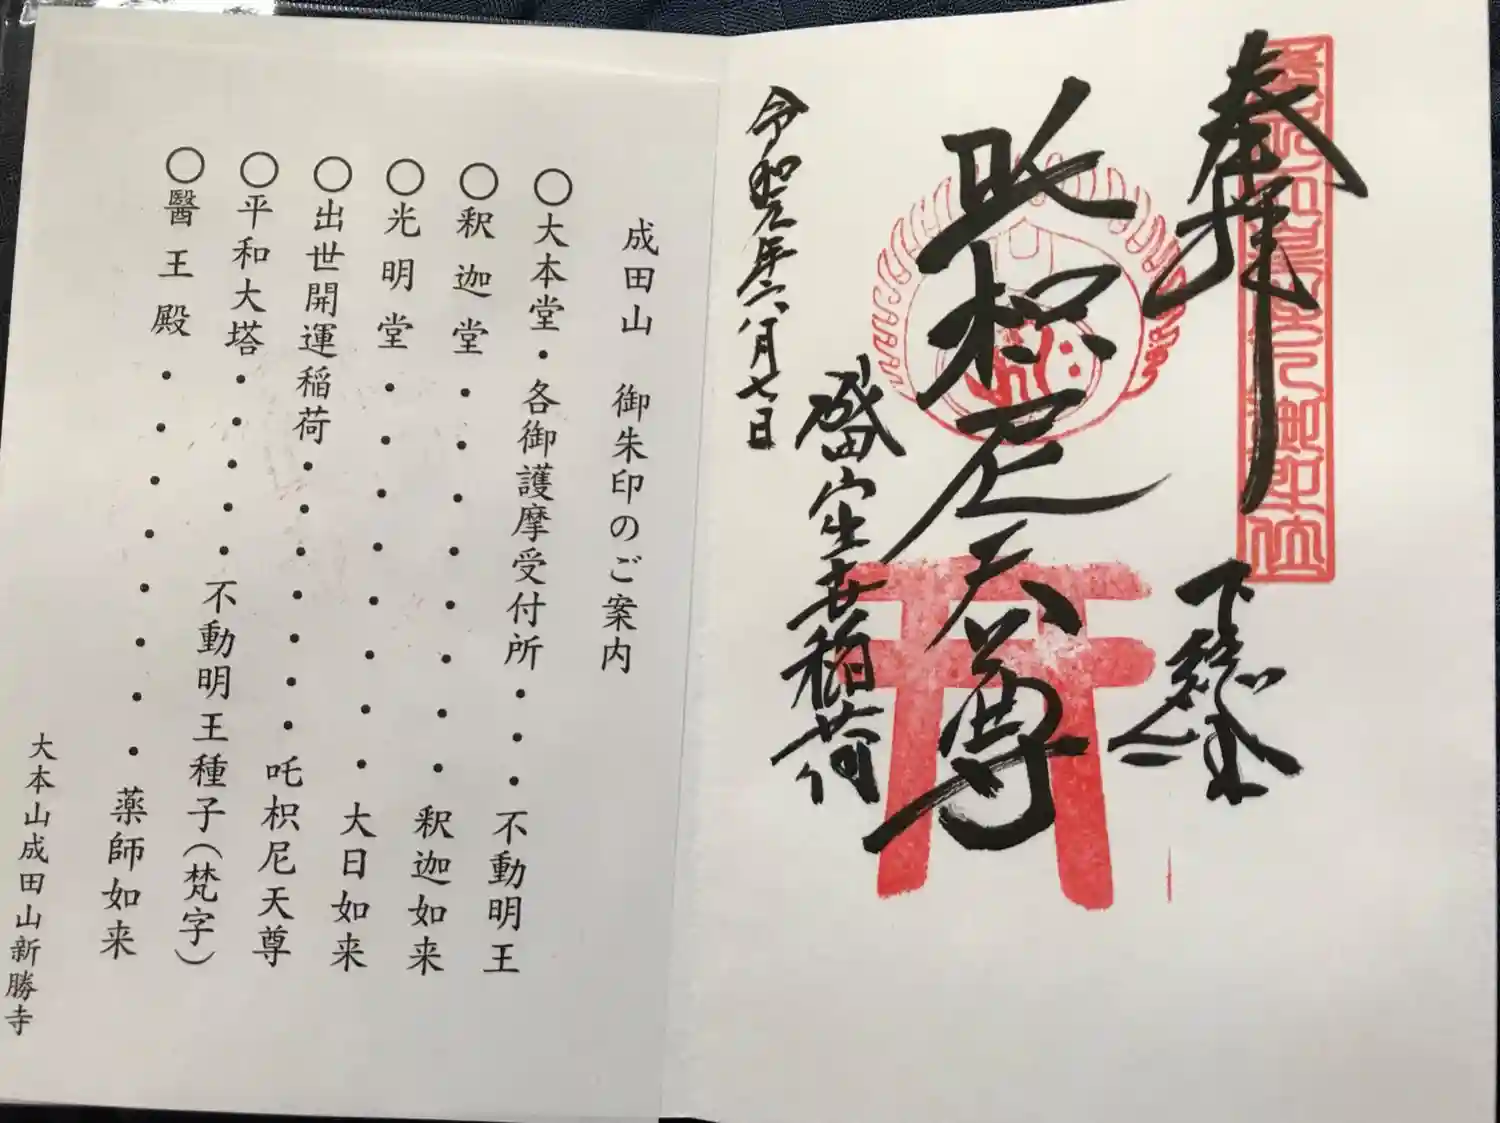 奉拝
下総国
吒枳尼天尊
成田山出世稲荷
令和元年六月七日
成田山 御朱印のご案内
〇大本堂・各御護摩受付所・・・不動明王
〇釈迦堂・・・・・・・・釈迦如来
〇光明堂・・・・・・・・大日如来
〇出世開運稲荷・・・・・・・吒枳尼天尊
〇平和大塔・・・・・不動明王種子(梵字)
〇醫王殿・・・・・・・・薬師如来
大本山成田山新勝寺